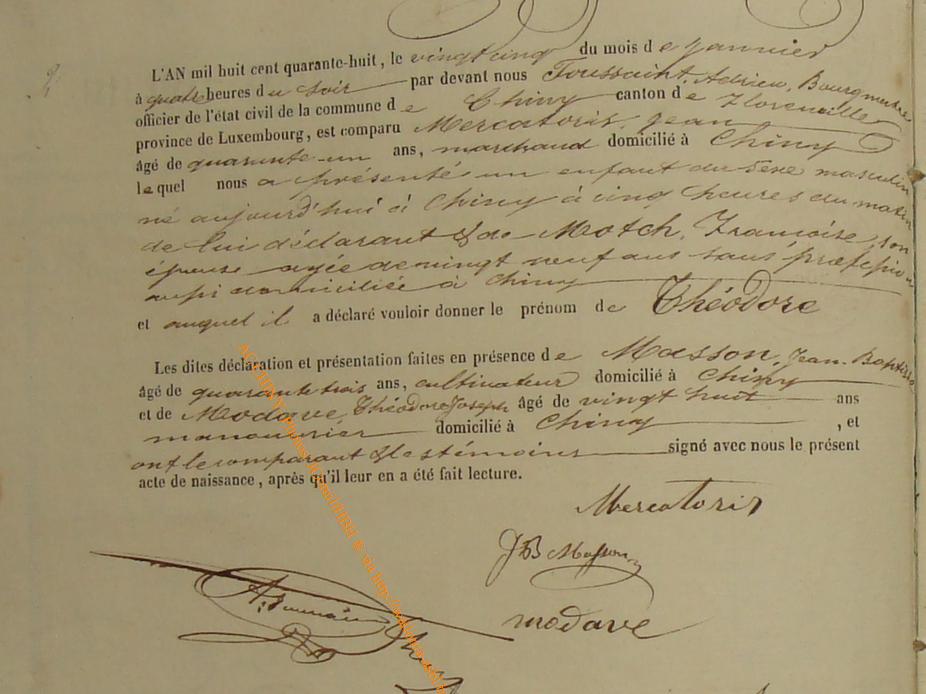 2
L'AN mil huit cent quarante-huit, le vingt cinq du mois de Janvier
à quatre heures du Soir par devant nous Toussaint, Adrien, Bourgmestre
officier de l'état civil de la commune de Chiny canton de Florenville
province de Luxembourg, est comparu Mercatoris, Jean
âgé de quarante-un ans, marchand domicilié à Chiny
lequel nous a présenté un enfant du Sexe masculin
né aujourd'hui à Chiny à cinq heures du matin
de lui déclarant & de Motch, Francoise, son
épouse agée de vingt neuf ans sans profession
aussi domiciliée à Chiny
et auquel il a déclaré vouloir donner le prénom de Théodore
Les dites déclaration et présentation faites en présence de Masson, Jean-Baptiste
âgé de quarante trois ans, cultivateur domicilié à Chiny
et de Modave, Théodore Joseph âgé de vingt huit ans
manouvrier domicilié à Chiny , et
ont le comparant & les témoins signé avec nous le présent
acte de naissance, après qu'il leur en a été fait lecture.
Mercatoris
JB Masson
modave